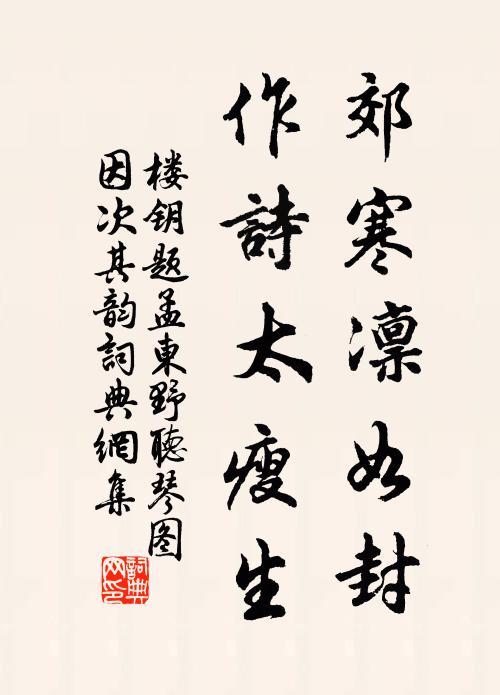 郊寒凛如封
作詩太瘦生
楼钥题孟東野聽琴图
因次其韵詞典網集
詞典网印